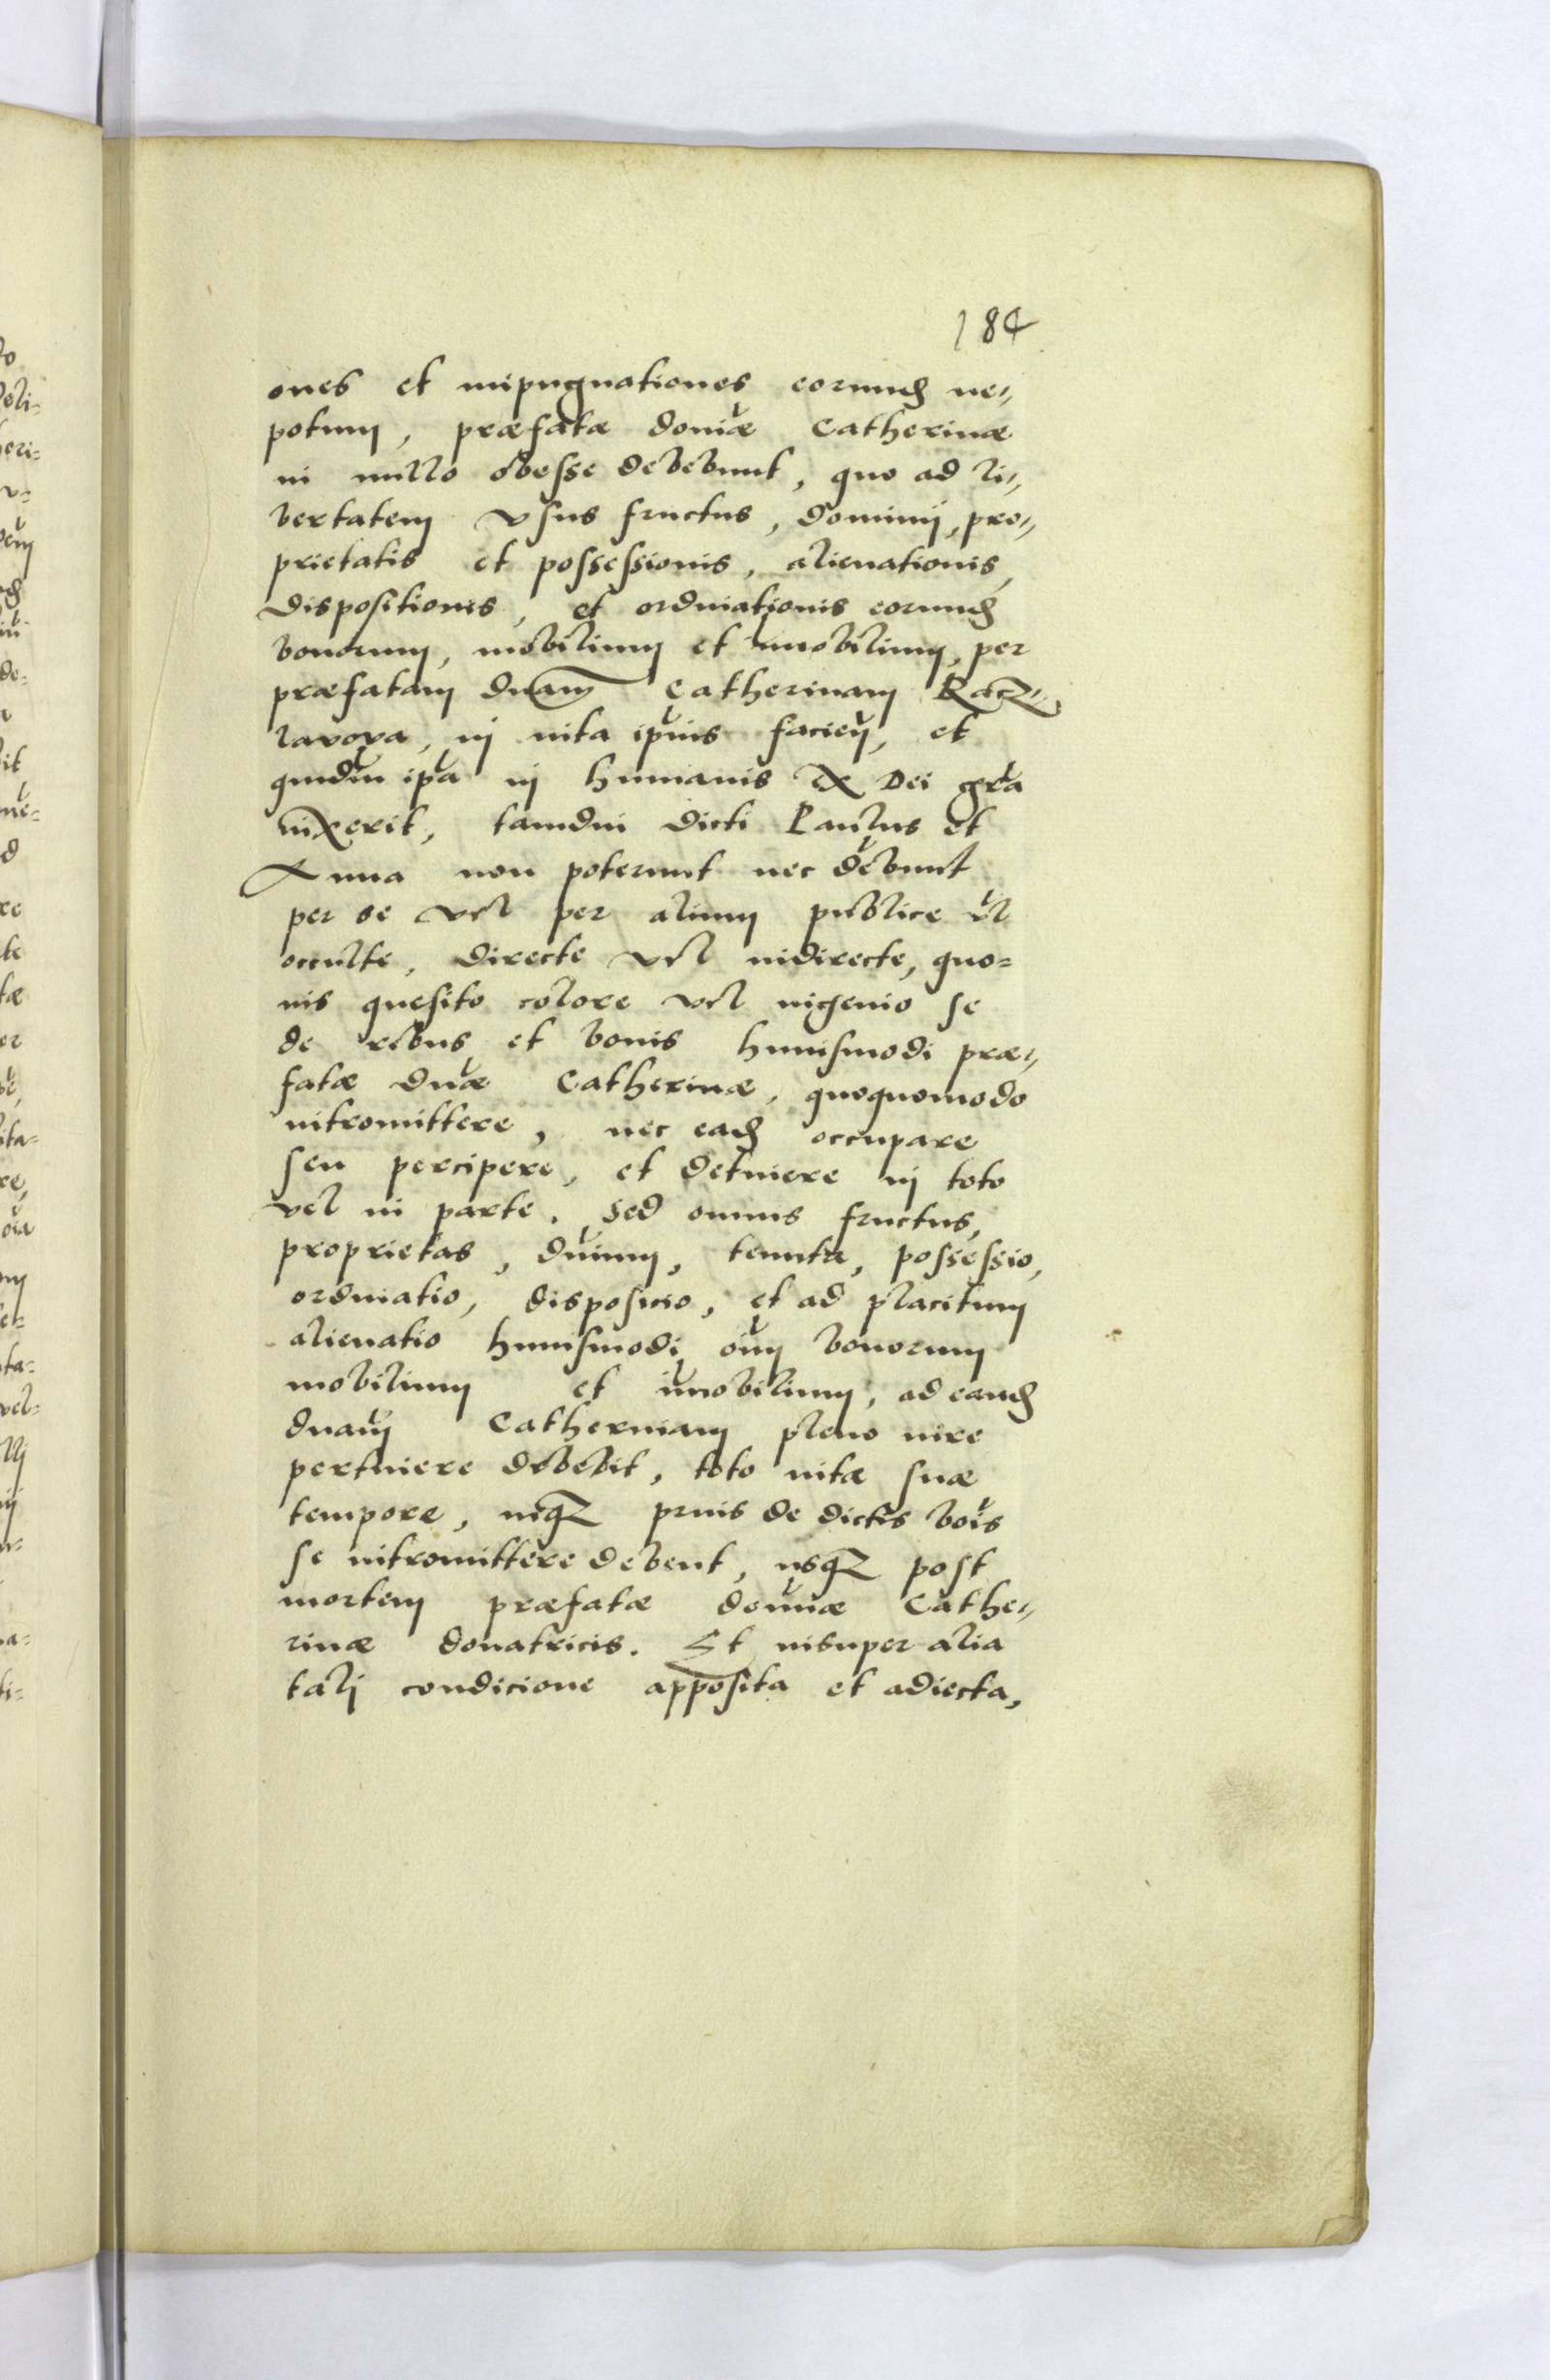 184
ones et impugnationes eorumd ne-
potum, præfatæ domæ Catherinæ
in nullo obesse debebunt, quo ad li-
bertatem vsus fructus, dominij, pro-
prietatis et possessionis, alienationis,
dispositionis, et ordinationis eorumd
bonorum, mobilium et imobilium, per
præfatam dnam Catherinam Racz-
lavova, in uita ipius facien, et
qmdiu ipa in humanis ex Dei gra
uixerit, tamdiu dicti Paulus et
Anna non poterunt nec debunt
per se vel per alium publice vl
occulte, directe vel indirecte, quo-
uis quesito colore vel ingenio se
de rebus et bonis huiusmodi præ-
fatæ dnæ Catherinæ, quoquomodo
intromittere, nec ead occupare
seu percipere, et detinere in toto
vel in parte. Sed omnis fructus,
proprietas, dnium, tenuta, possessio,
ordinatio, disposicio, et ad placitum
alienatio huiusmodi oium bonorum
mobilium et imobilium, ad eand
dnam Catherinam pleno iure
pertinere debebit, toto uitæ suæ
tempore, neq prius de dictis bois
se intromittere debent, usq post
mortem præfatæ domnæ Cathe-
rinæ donatricis. Et insuper alia
tali condicione apposita et adiecta,